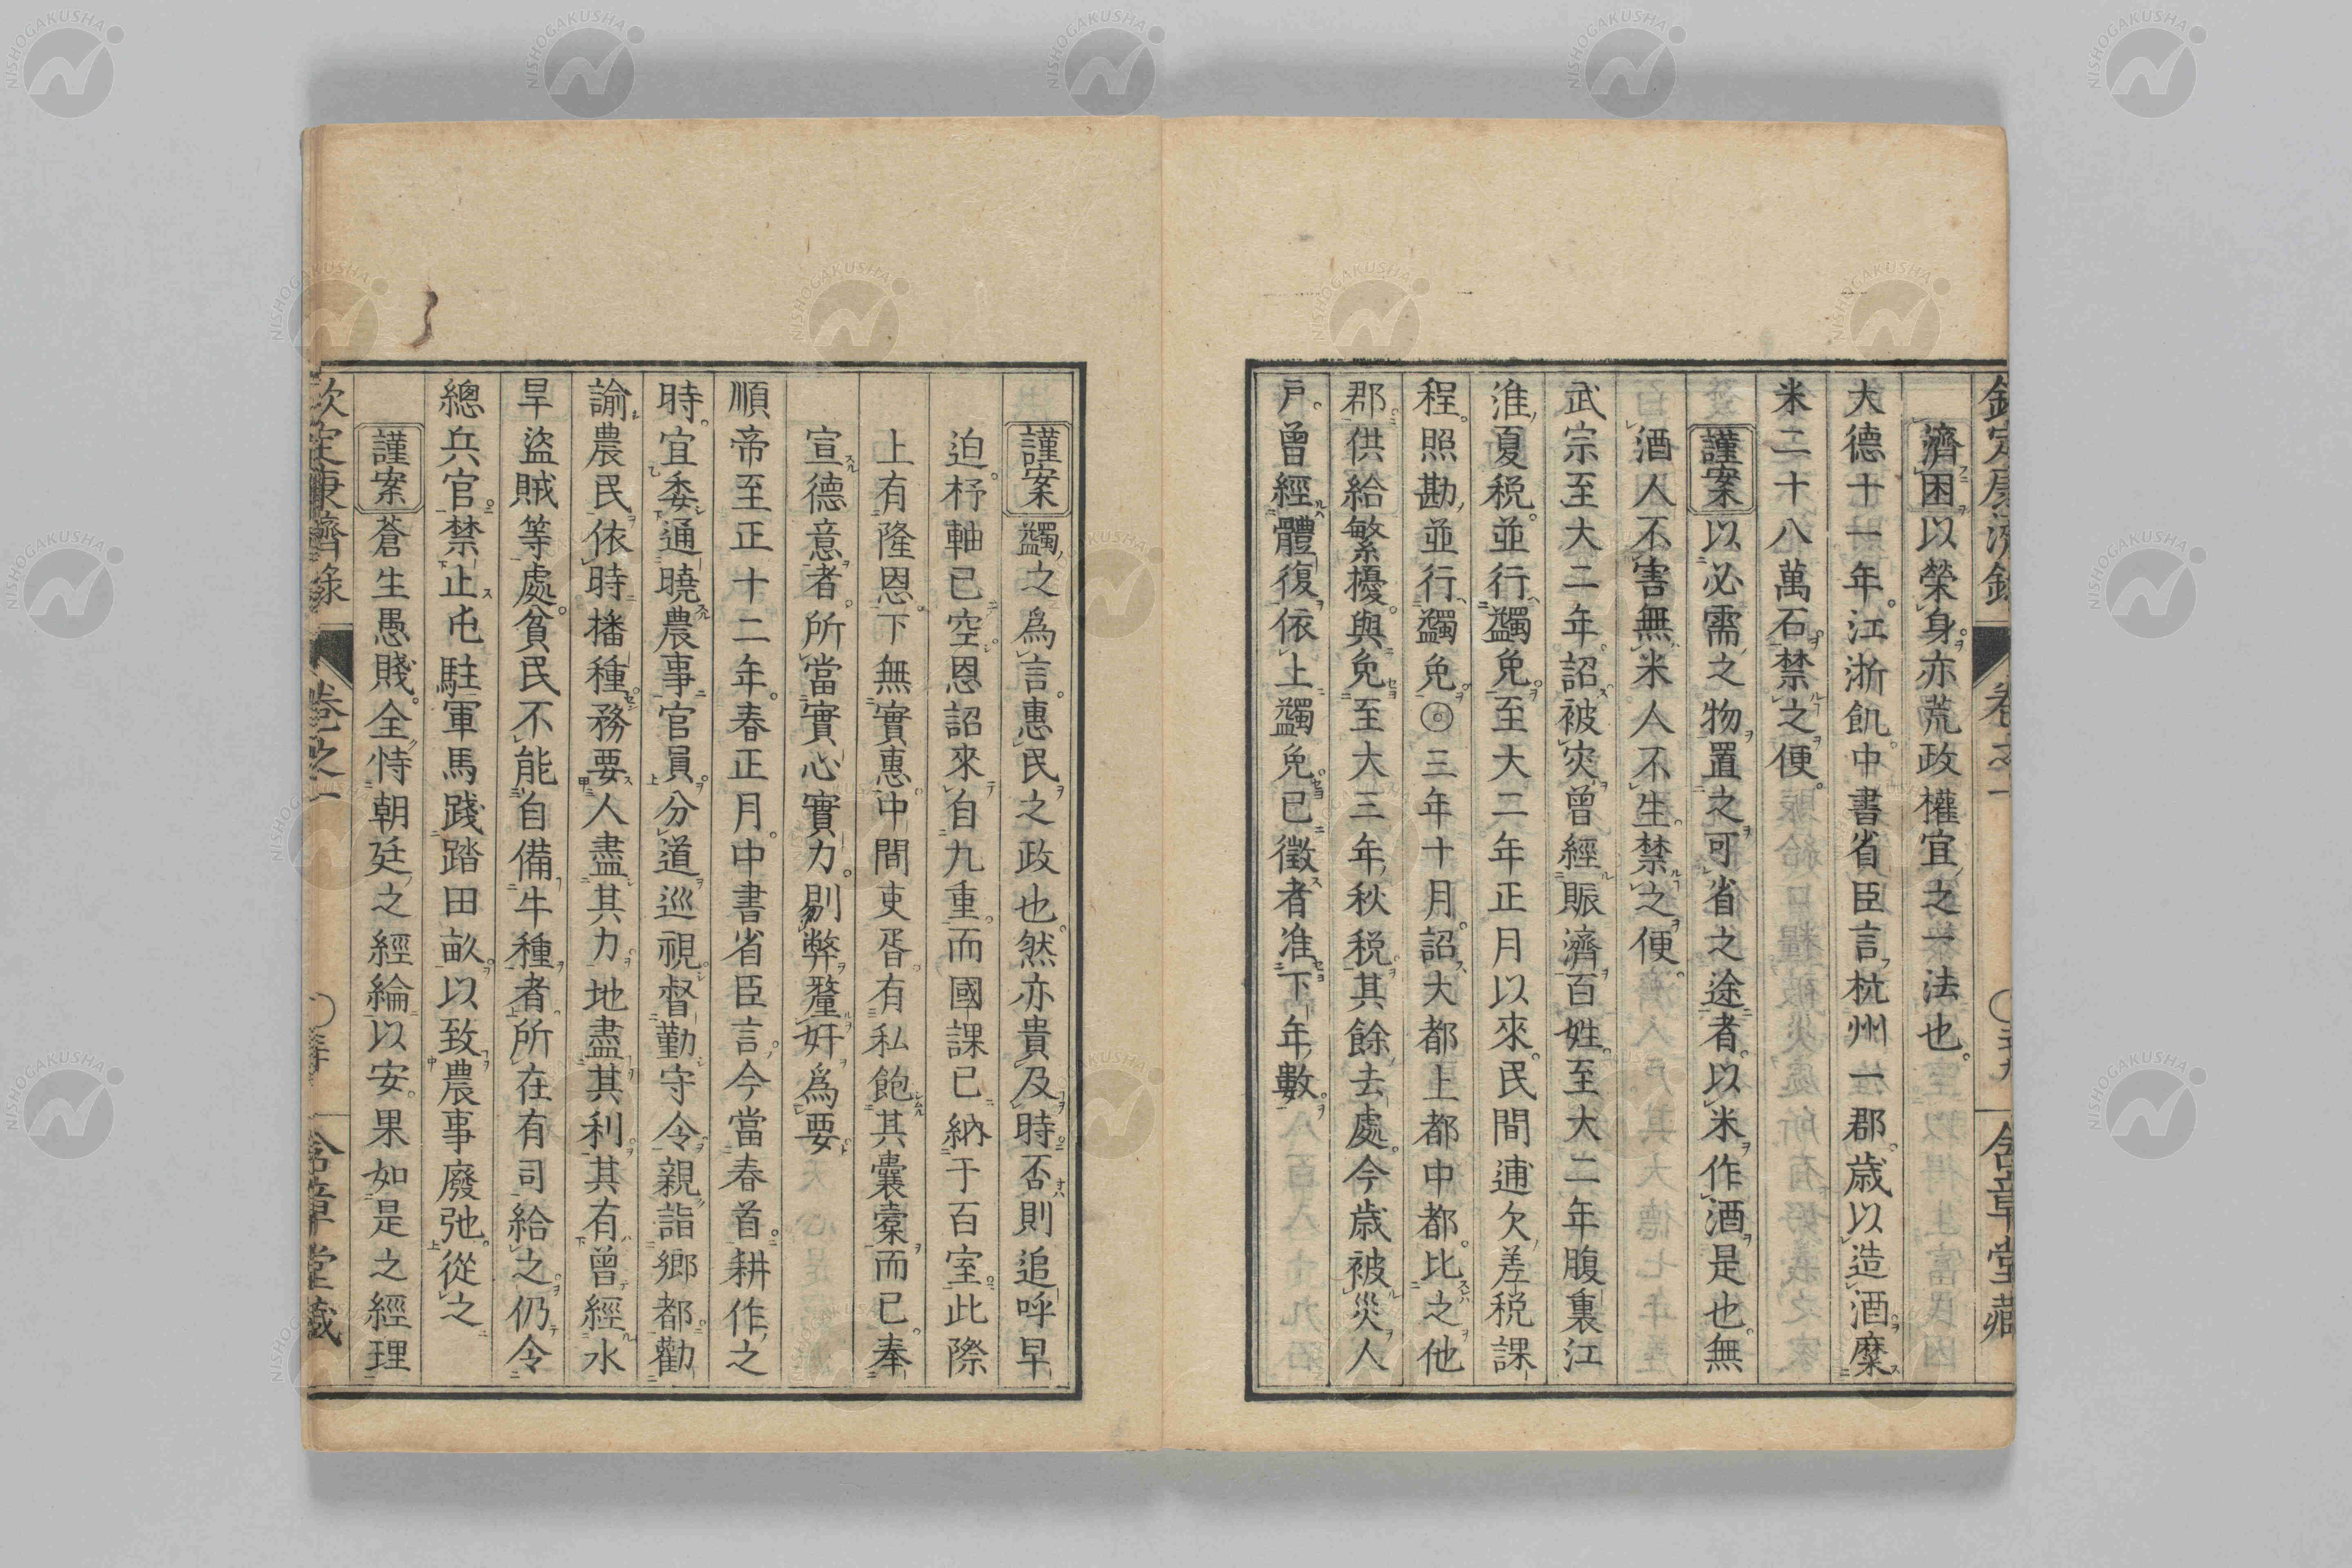 濟困以榮身亦荒政權宜之一法也
大德十一年江浙飢中書省臣言杭州一郡歳以造酒糜
米二十八萬石禁之便
謹案以必需之物置之可省之途者以米作酒是也無
酒人不害無米人不生禁之便
武宗至大二年詔被灾曾經賑濟百姓至大二年腹裏江
淮夏税並行蠲免至大二年正月以來民間逋欠差税課
程照勘並行蠲免◎三年十月詔大都上都中都比之他
郡供給繁擾與免至大三年秋税其餘去處今歳被災人
戸曾經體復依上蠲免已徴者准下年數
謹案蠲之爲言惠民之政也然亦貴及時否則追呼早
迫杼軸已空恩詔來自九重而國課已納于百室此際
上有隆恩下無實惠中間吏胥有私飽其嚢槖而已奉
宣德意者所當實心實力剔弊釐奸爲要
順帝至正十二年春正月中書省臣言今當春首耕作之
時宜委通曉農事官員分道巡視督勤守令親詣鄉都勸
諭農民依時播種務要人盡其力地盡其利其有曾經水
旱盜賊等處貧民不能自備牛種者所在有司給之仍令
總兵官禁止屯駐軍馬踐踏田畝以致農事廢弛從之
謹案蒼生愚賤全恃朝廷之經綸以安果如是之經理
欽定康濟錄 卷之一 含章堂藏